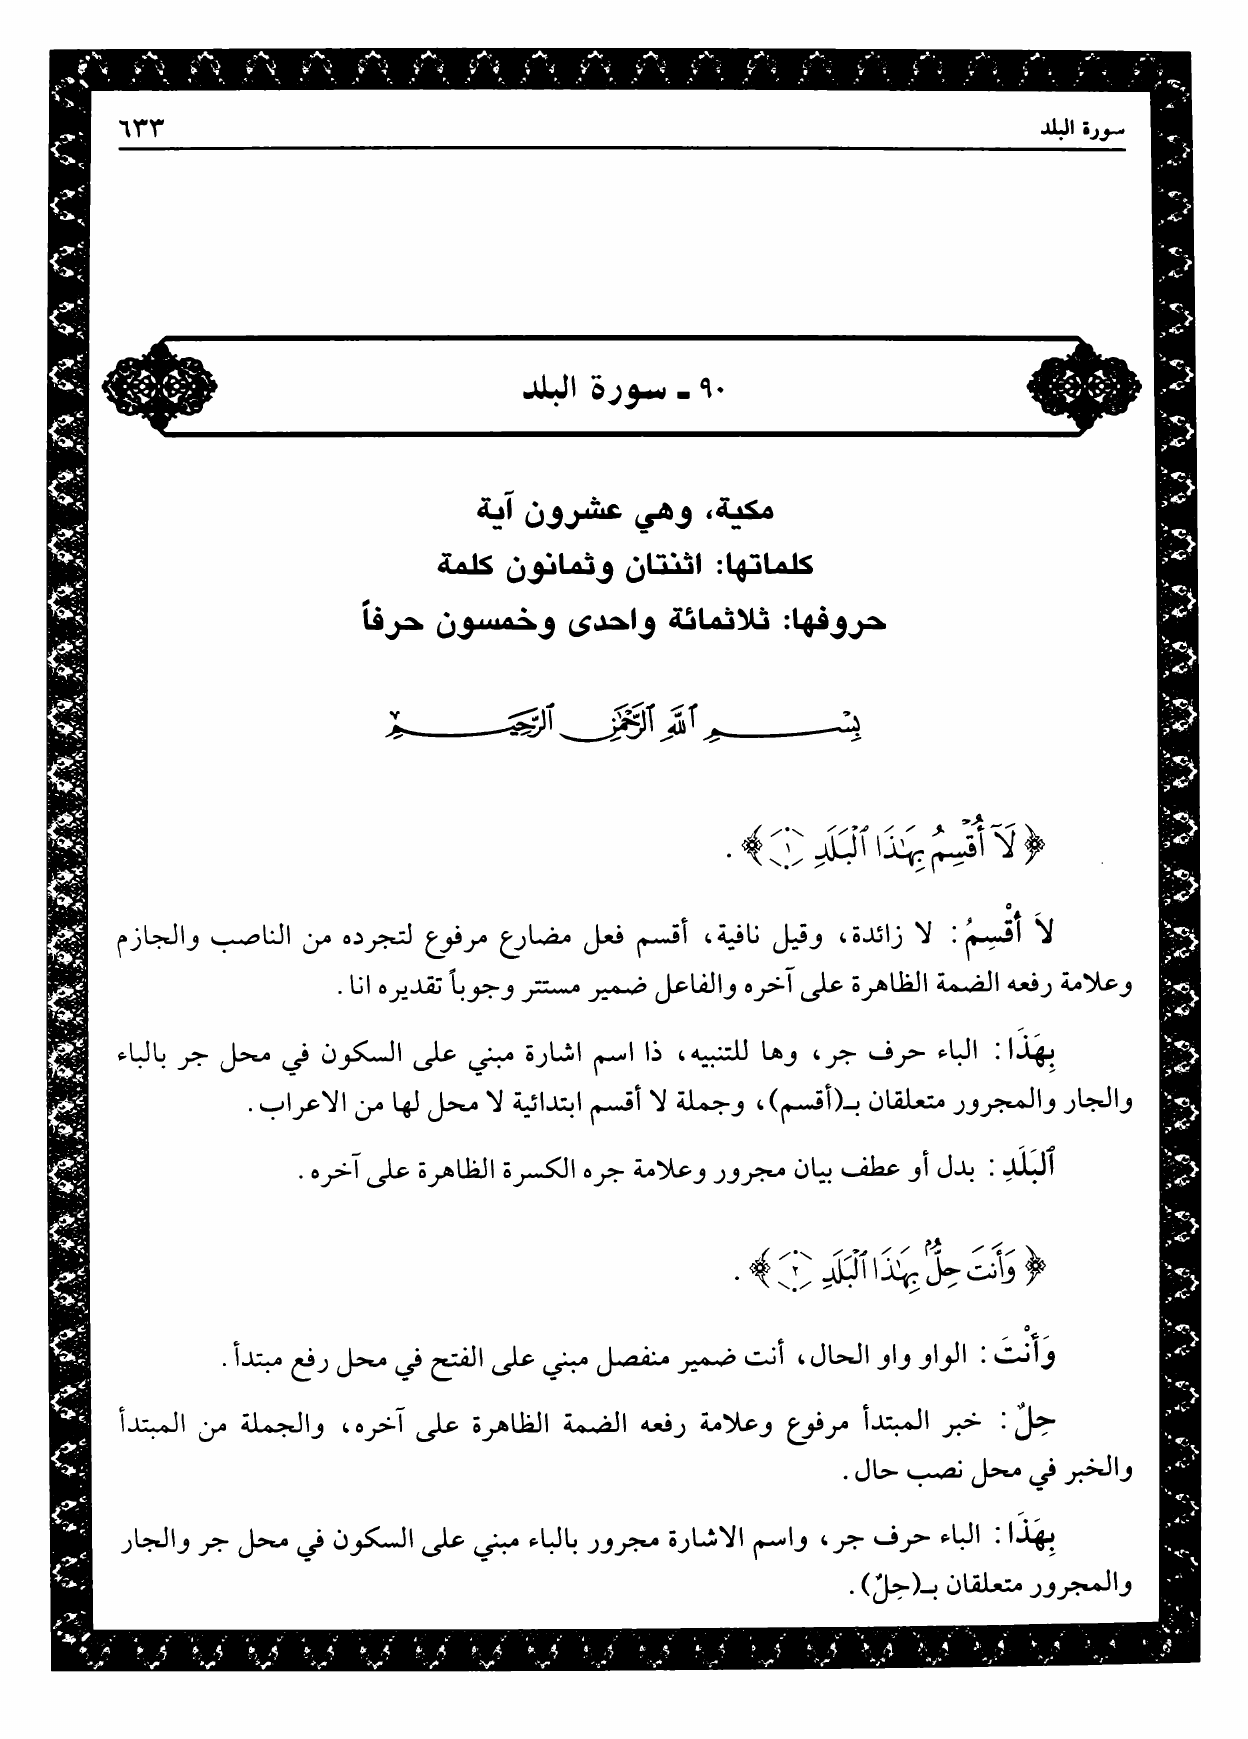 سورة البلد
٦٣٣
٩٠ ـ سورة البلد
مكية، وهي عشرون آية
كلماتها: اثنتان وثمانون كلمة
حروفها: ثلاثمائة واحدى وخمسون حرفاً
بِسْمِ ٱللَّهِ ٱلرَّحْمَٰنِ ٱلرَّحِيمِ
﴿ لَآ أُقْسِمُ بِهَٰذَا ٱلْبَلَدِ ١ ﴾ .
لاَ أُقْسِمُ : لا زائدة، وقيل نافية، أقسم فعل مضارع مرفوع لتجرده من الناصب والجازم
وعلامة رفعه الضمة الظاهرة على آخره والفاعل ضمير مستتر وجوباً تقديره انا .
بِهَذَا : الباء حرف جر، وها للتنبيه، ذا اسم اشارة مبني على السكون في محل جر بالباء
والجار والمجرور متعلقان بـ(أقسم)، وجملة لا أقسم ابتدائية لا محل لها من الاعراب .
ٱلبَلَدِ : بدل أو عطف بيان مجرور وعلامة جره الكسرة الظاهرة على آخره .
﴿ وَأَنتَ حِلٌّۢ بِهَٰذَا ٱلْبَلَدِ ٢ ﴾ .
وَأَنْتَ : الواو واو الحال، أنت ضمير منفصل مبني على الفتح في محل رفع مبتدأ .
حِلٌ : خبر المبتدأ مرفوع وعلامة رفعه الضمة الظاهرة على آخره، والجملة من المبتدأ
والخبر في محل نصب حال .
بِهَذَا : الباء حرف جر، واسم الاشارة مجرور بالباء مبني على السكون في محل جر والجار
والمجرور متعلقان بـ(حِلٌ) .